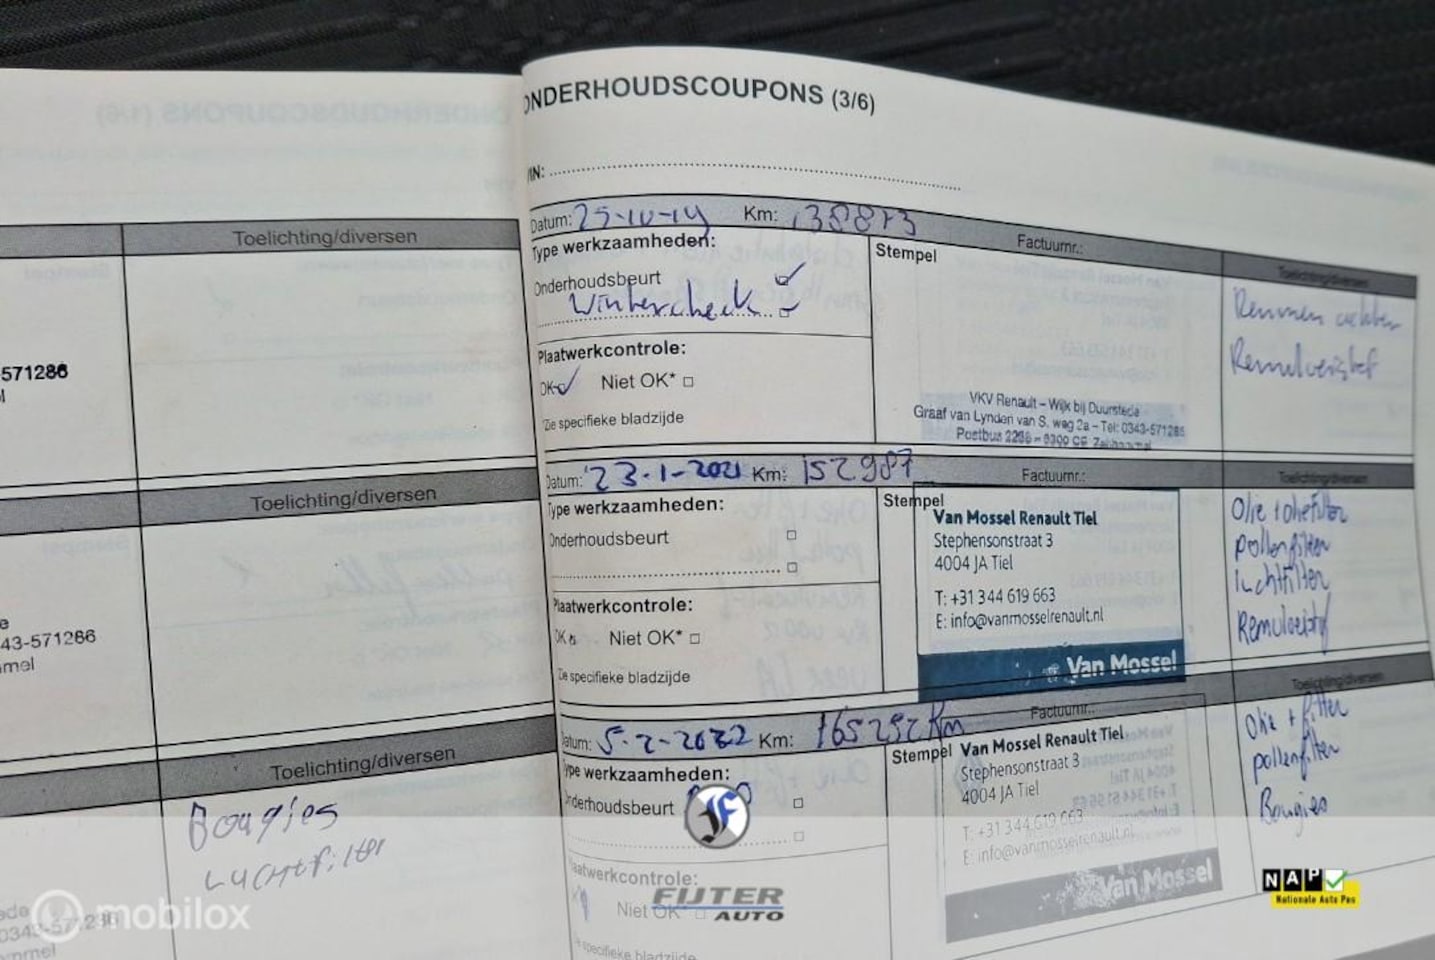 Toelichting/diversen
571286
Toelichting/diversen
43-571286
mmel
Toelichting/diversen
Bougies
Luchtfilter
ONDERHOUDSCOUPONS (3/6)
VIN:
Datum: 25-10-19 Km: 138873 Factuurnr.: Toelichting/diversen
Type werkzaamheden: Stempel
Onderhoudsbeurt
Wintercheck
Remmen
Remvloeistof
Plaatwerkcontrole:
OK Niet OK*
*Zie specifieke bladzijde
VKV Renault – Wijk bij Duurstede
Graaf van Lynden van S. weg 2a – Tel: 0343-571286
Postbus
Datum: 23-1-2021 Km: 152987 Factuurnr.: Toelichting/diversen
Type werkzaamheden: Stempel
Onderhoudsbeurt
Plaatwerkcontrole:
OK Niet OK*
*Zie specifieke bladzijde
Van Mossel Renault Tiel
Stephensonstraat 3
4004 JA Tiel
T: +31 344 619 663
E: info@vanmosselrenault.nl
Van Mossel
Olie + oliefilter
pollenfilter
luchtfilter
Remvloeistof
Datum: 5-2-2022 Km: 165292 Km Factuurnr.: Toelichting/diversen
Type werkzaamheden: Stempel
Onderhoudsbeurt
Plaatwerkcontrole:
Niet OK*
*Zie specifieke bladzijde
Van Mossel Renault Tiel
Stephensonstraat 3
4004 JA Tiel
T: +31 344 619 663
E: info@vanmosselrenault.nl
Van Mossel
Olie + filter
pollenfilter
Bougies
mobilox
FIJTER
AUTO
NAP
Nationale Auto Pas